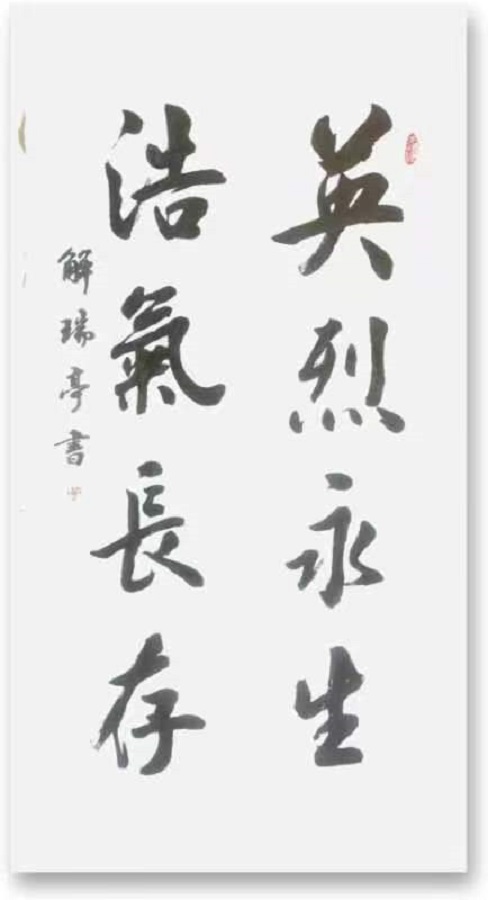 英烈永生
浩氣長存
解瑞亭書